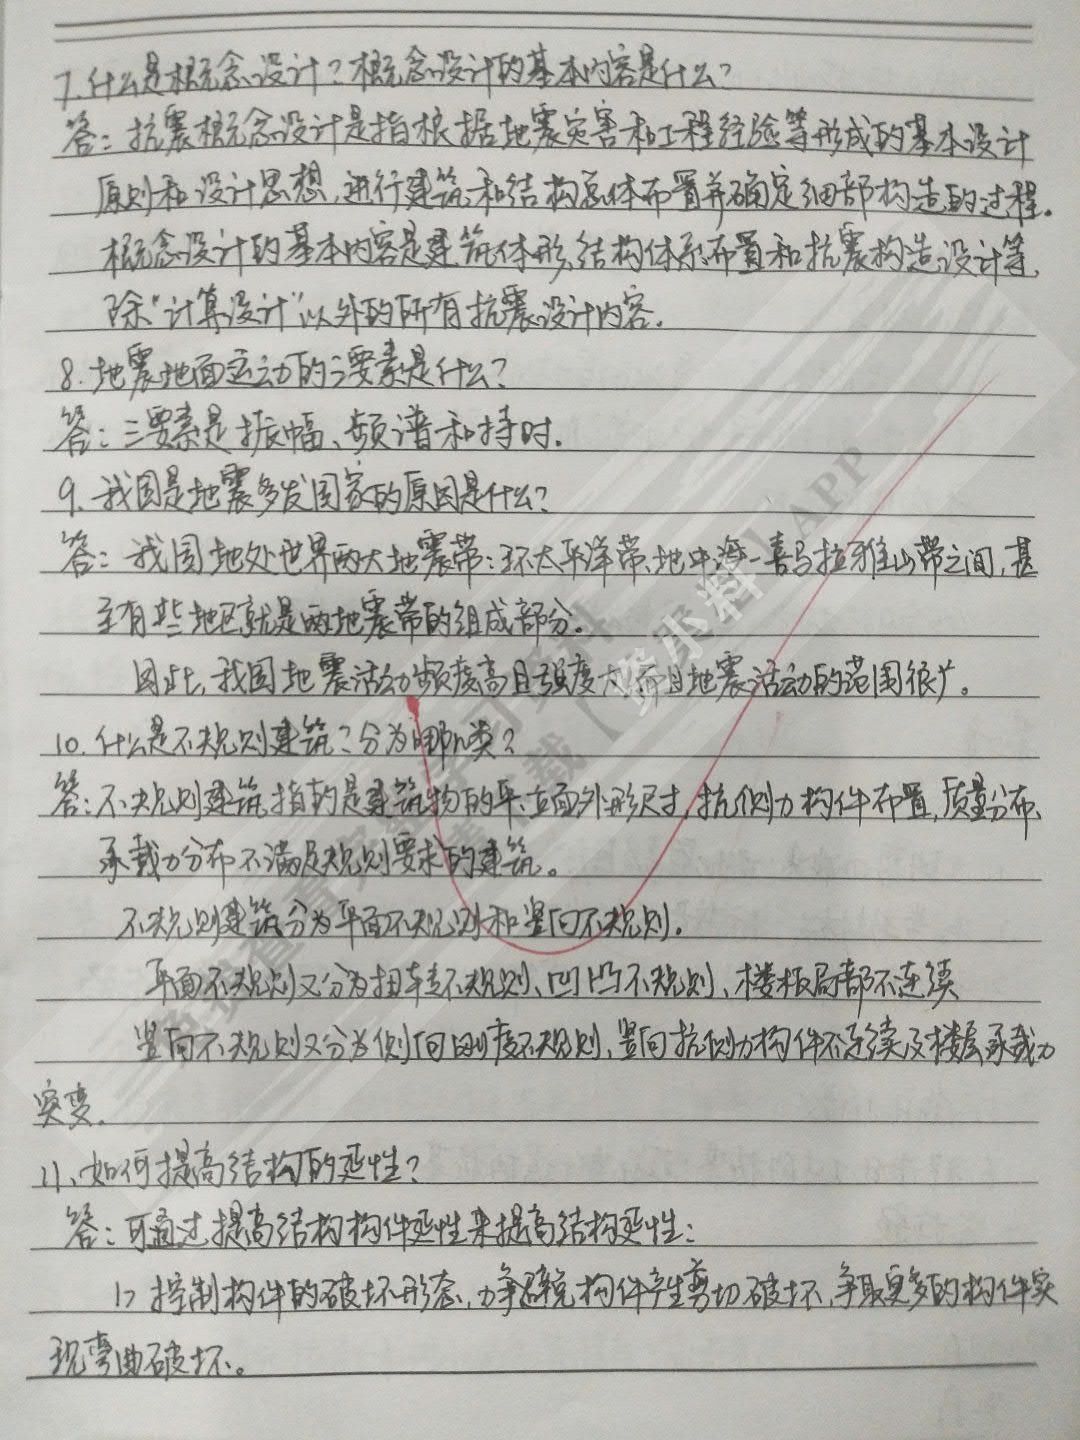 7.什么是概念设计？概念设计的基本内容是什么？
答：抗震概念设计是指根据地震灾害和工程经验等形成的基本设计
原则和设计思想,进行建筑和结构总体布置并确定细部构造的过程。
概念设计的基本内容是建筑体形,结构体系布置和抗震构造设计等,
除“计算设计”以外的所有抗震设计内容。
8.地震地面运动的三要素是什么？
答：三要素是振幅、频谱和持时.
9.我国是地震多发国家的原因是什么？
答：我国地处世界两大地震带：环太平洋带、地中海-喜马拉雅山带之间,甚
至有些地区就是两地震带的组成部分。
因此,我国地震活动频度高且强度大,而且地震活动的范围很广。
10.什么是不规则建筑？分为哪几类？
答：不规则建筑指的是建筑物的平、立面外形尺寸,抗侧力构件布置,质量分布、
承载力分布不满足规则要求的建筑。
不规则建筑分为平面不规则和竖向不规则.
平面不规则又分为扭转不规则、凹凸不规则、楼板局部不连续
竖向不规则又分为侧向刚度不规则、竖向抗侧力构件不连续及楼层承载力
突变。
11、如何提高结构的延性？
答：可通过提高结构构件延性来提高结构延性：
1> 控制构件的破坏形态,力争避免构件产生剪切破坏,争取更多的构件实
现弯曲破坏。